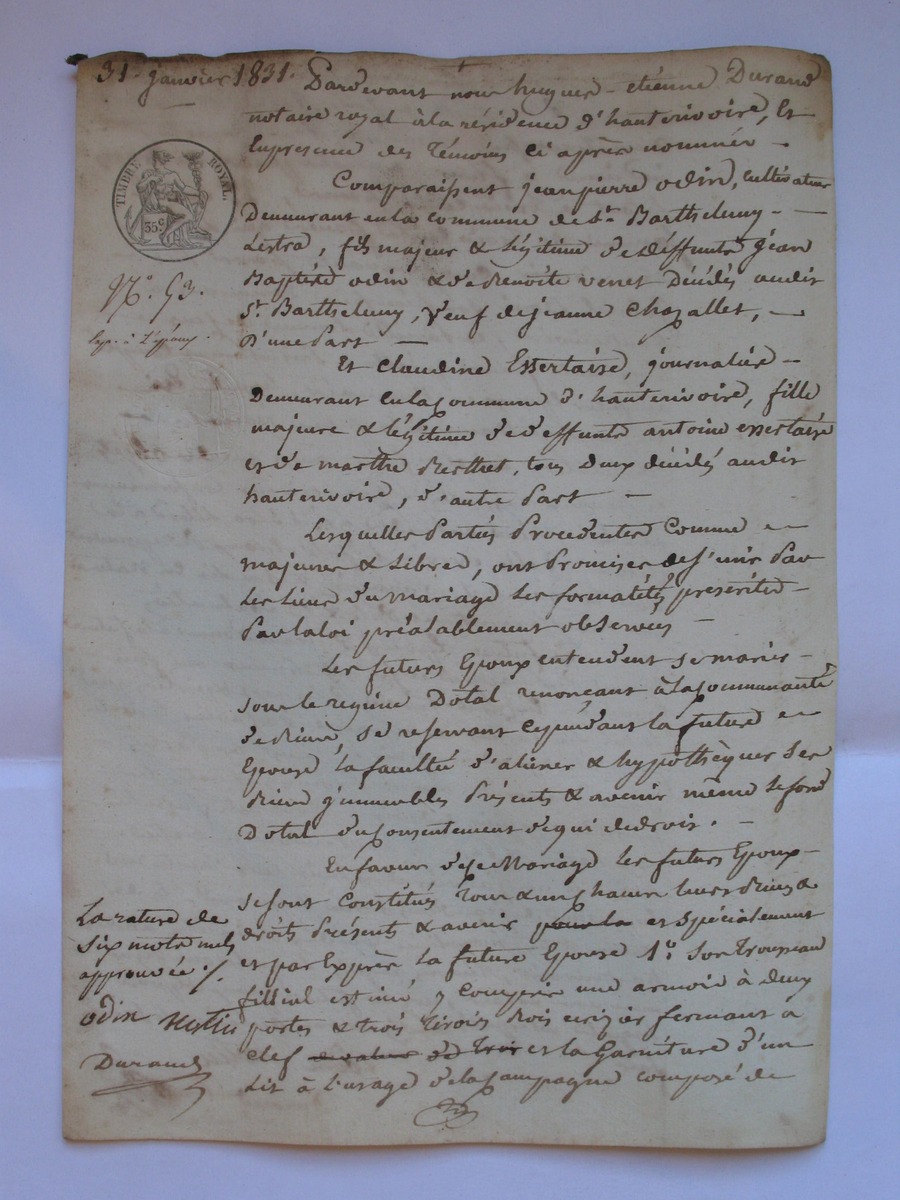 31. janvier 1831.
Pardevant nous hugues-etienne Durand
notaire royal à la résidence d'hauterivoire, Et
En presence des témoins ci après nommés -
TIMBRE ROYAL
35 c
N°. 53.
Comparaissent jean pierre odin, cultivateur
Demeurant en la commune de St. Barthelemy -
Lestra, fils majeur & légitime de deffunts jean
Baptiste odin & de Benoite venet Décédés audit
St. Barthelemy, veuf de jeanne Chazallet, -
D'une Part -
Et Claudine Essertaise, journalière -
Demeurant en la commune d'hauterivoire, fille
majeure & légitime de deffunts antoine essertaise
et de marthe, tous deux décédés audit
hauterivoire, d'autre Part -
Lesquelles Parties Procedentes Comme -
majeures & Libres, ont Promises de s'unir Par
Les Liens du mariage Les formalités prescrites -
Par la loi préalablement observées -
Les futurs Epoux entendent se marier -
sous le regime Dotal renonçant à la communauté
de biens, se reservant cependant la future -
Epouse la faculté d'aliéner & hypothèquer ses
Biens immeubles Présents & avenir même le fond
Dotal du consentement de qui de droit. -
En faveur de ce Mariage Les futurs Epoux -
se sont Constitués tous & un chacun leurs Biens &
droits Présents & avenir pour la et Spécialement
et par Exprès La future Epouse 1°. Son Trousseau
fillial estimé y compris une armoir à deux
portes & trois tirois Bois cerizier fermant a
clef et la Garniture d'un
Lit à L'usage de la campagne composé de
La rature de
six mots nuls
approuvée ./.
odin
Durand